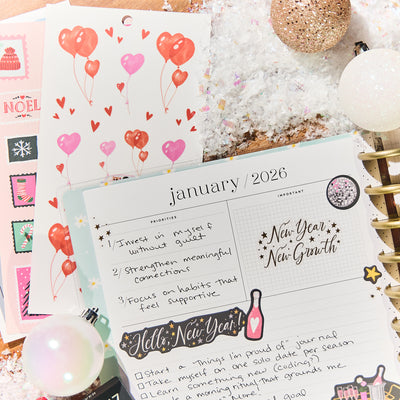 NOEL
january / 2026
PRIORITIES
IMPORTANT
1/ Invest in myself
without guilt
2/ Strengthen meaningful
connections
3/ Focus on habits that
feel supportive
New Year
New Growth
Hello, New Year!
Start a "Things I'm proud of" journal
Take myself on one solo date per season
Learn something new (coding?)
a morning ritual that grounds me
more!
goal